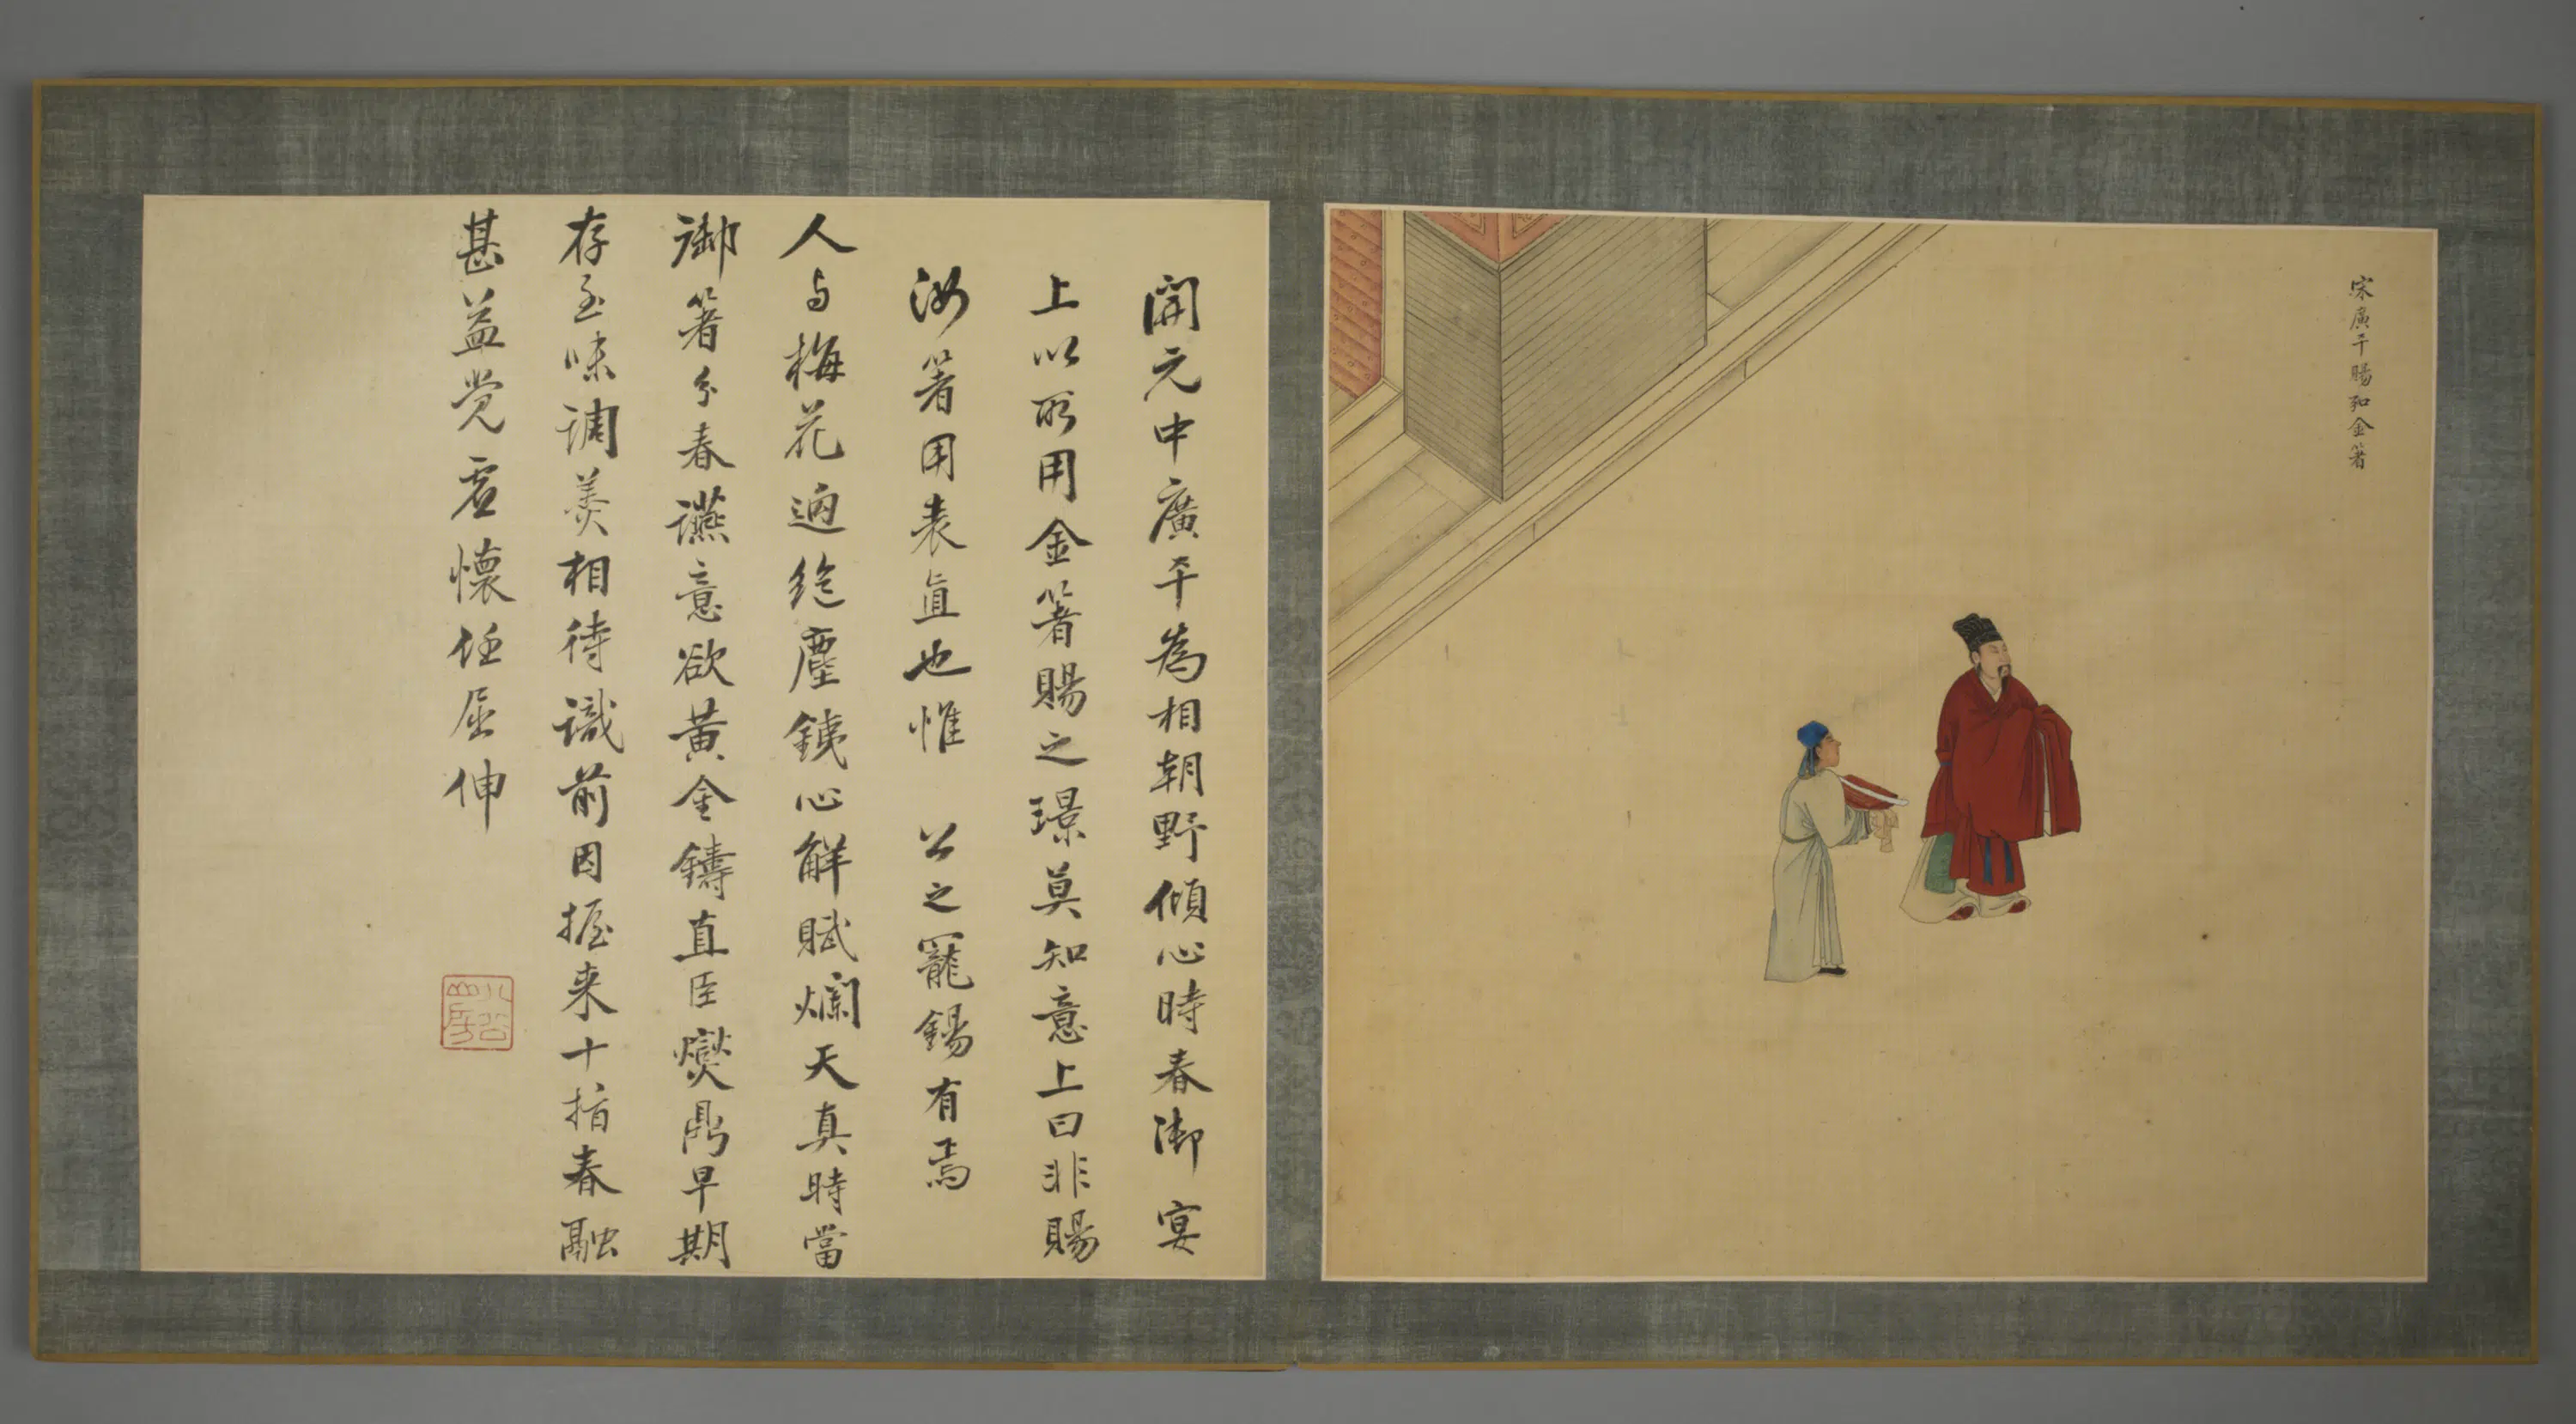 宋廣平賜和金箸
開元中廣平為相朝野傾心時春御宴
上以所用金箸賜之璟莫知意上曰非賜
汝箸用表直也惟 公之寵錫有焉
人与梅花逈絶塵鐵心解賦爛天真時當
御箸分春讌意欲黄金鑄直臣爕鼎早期
存至味調羮相待識前因握来十指春融
甚益覺虚懷任屈伸
八公山房